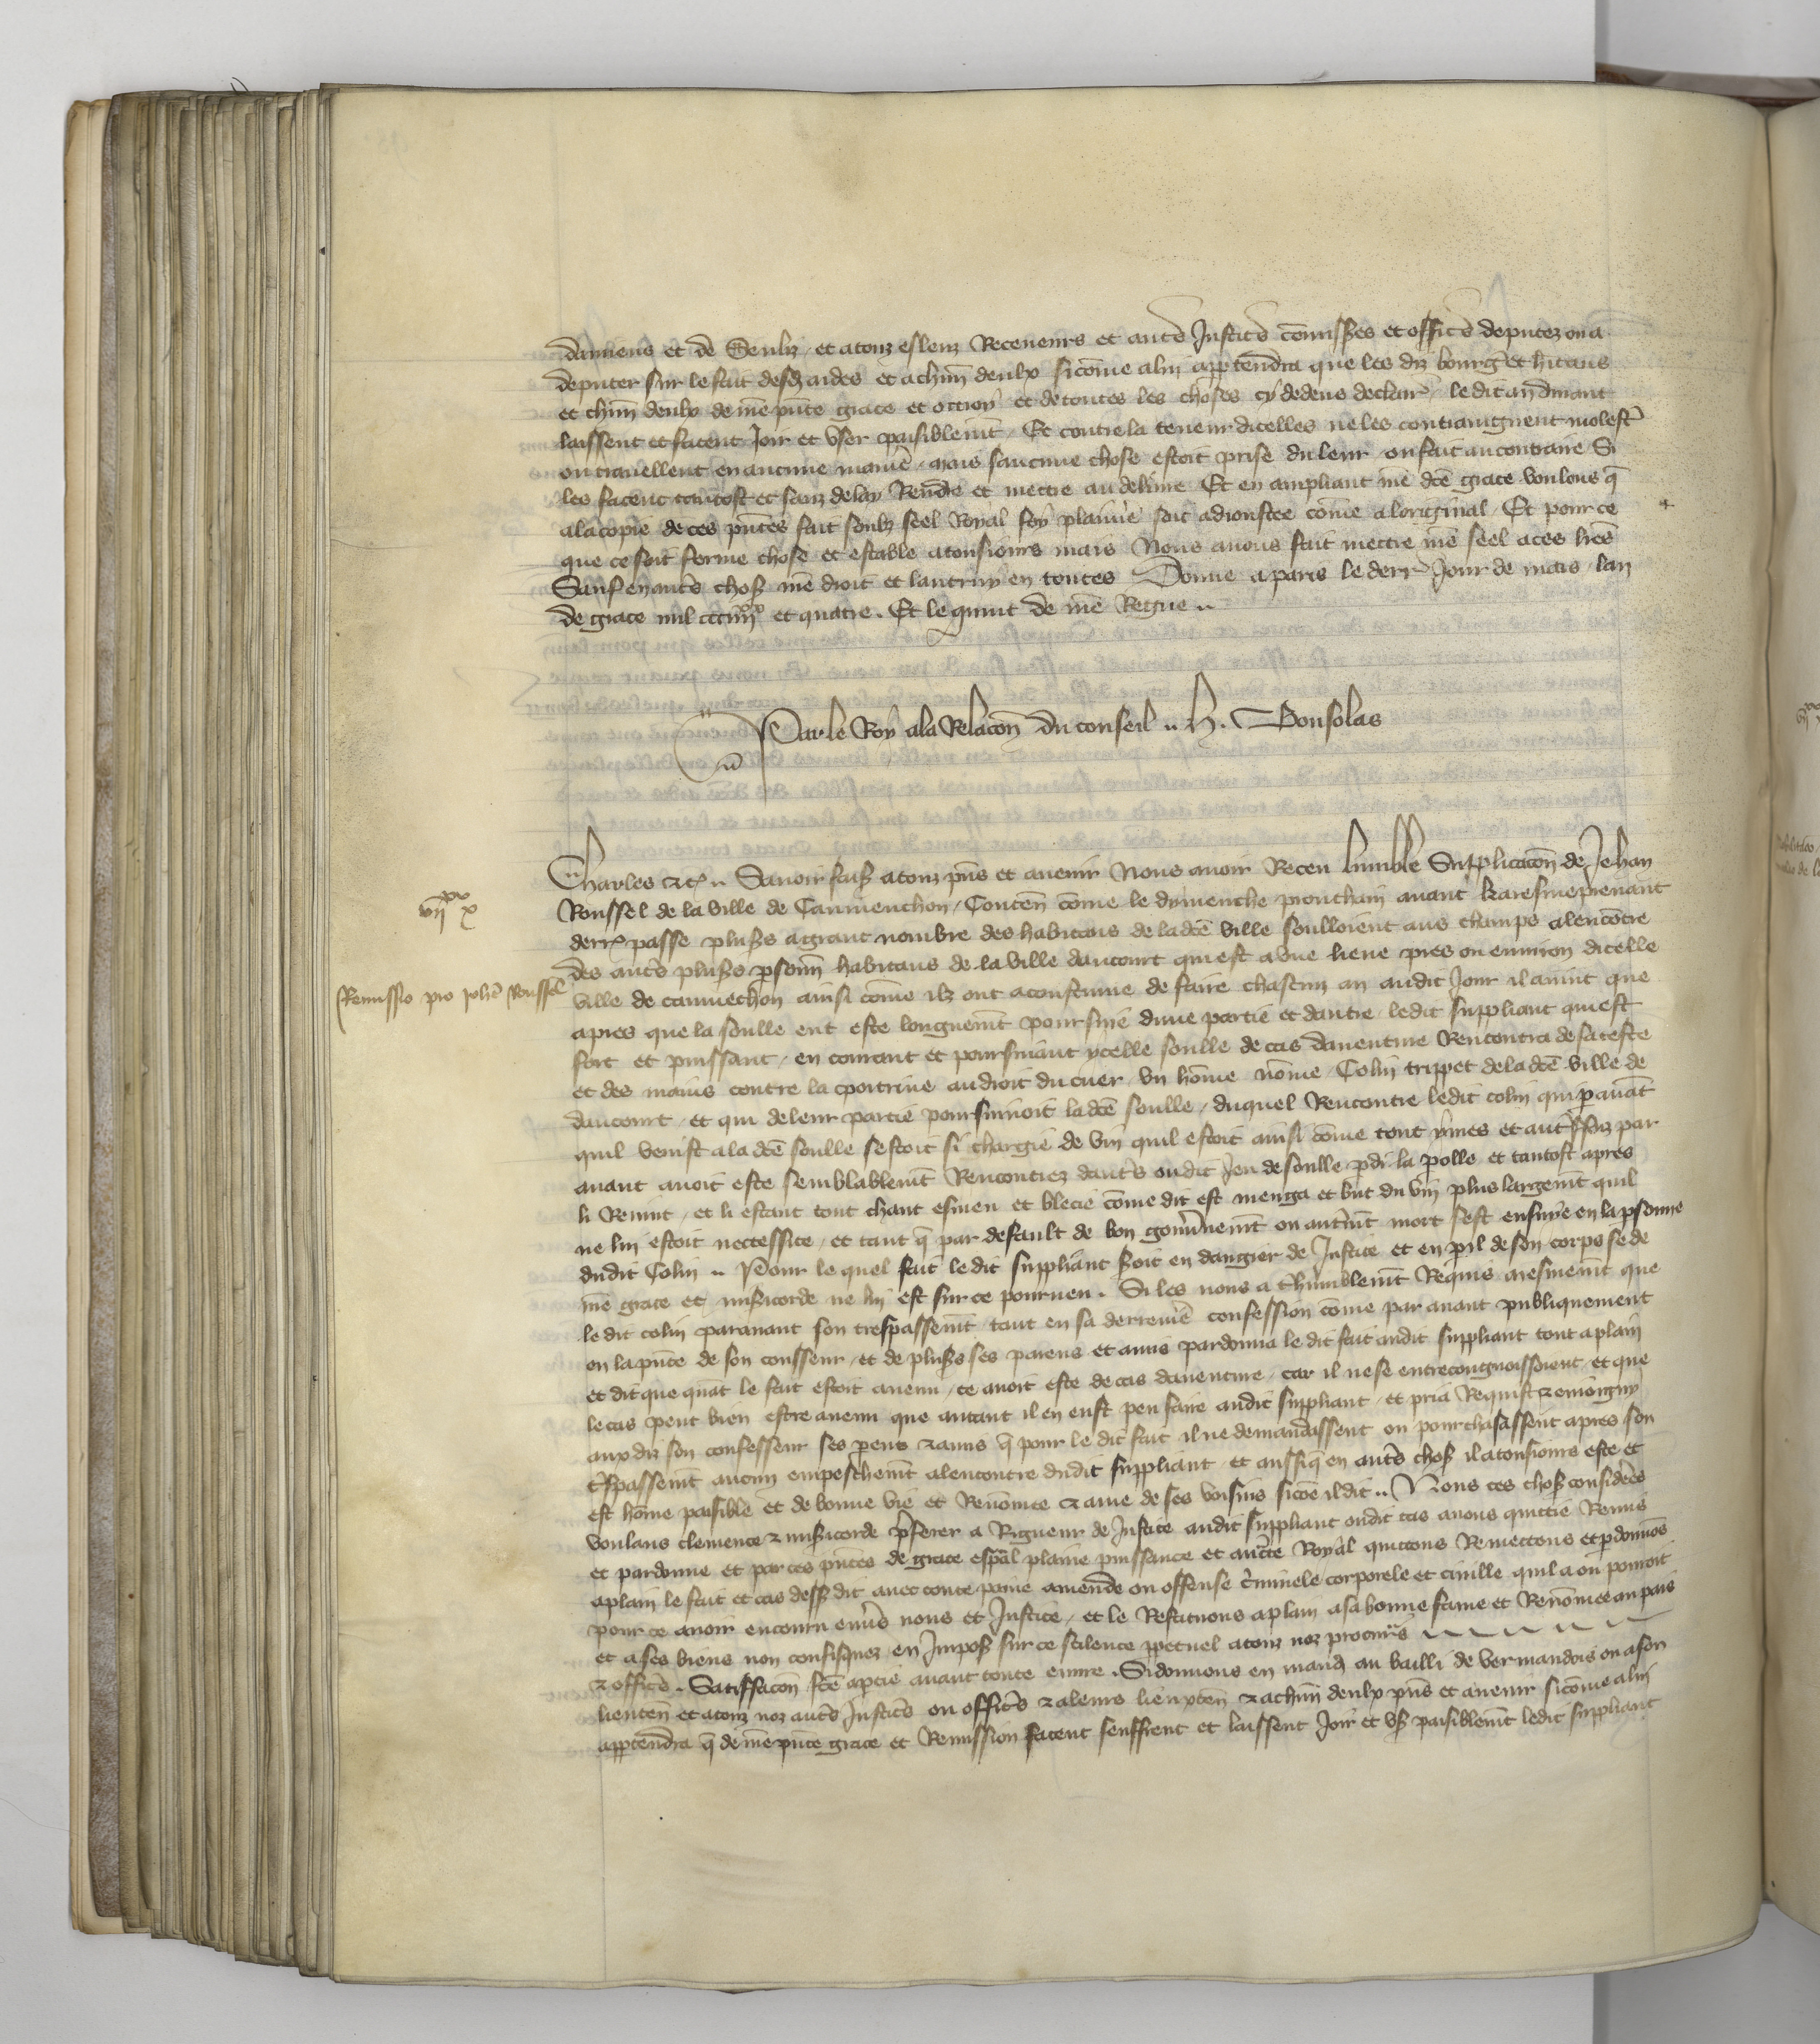 damiens et de Senliz et a touz esleuz Receveurs et autˢ Justicˢ commissˢes et officˢ deputez ou a
deputer sur le fait desdˢ aides et a chūn deulx sicōme a lui apptendra que les diz bourgˢ et hˢitans
et chūn deulx de nrē pnte grace et ottroy et de toutes les choses cy dedens declairˢ le dit an durant
laissent et facent Joir et user paisiblemt Et contre la teneur dicelles ne les contraingnent molestˢ
ou travellent en aucune manie mais saucune chose estoit prise du leur ou fait au contraire Si
les facent tantost et sanz delay Rendre et mettre au delivre Et en ampliant nrē dcē grace voulons q̄
a la copie de ces pntes fait soubz seel Royal foy plaine soit adioustee cōme a loriginal Et pour ce
que ce soit ferme chose et estable a tousiours mais Nous avons fait mettre nrē seel a ces lrēs
Sauf en autˢ choses nrē droit et lautruy en toutes Donne a paris le derrˢ Jour de mars lan
de grace mil ccciiiixx et quatre. Et le quint de nrē Regne
Par le Roy a la Relacōn du conseil H. Bonsolas
Charles &c Savoir faisˢ a touz pns et avenir Nous avoir Receu lumble Supplicacōn de Jehan
viixx x
Roussel de la ville de Caumenchon Contenˢ cōme le dymenche prouchain avant karesmeprenant
derrˢ passe plusˢs a grant nombre des habitans de la dcē ville soulloient aus champs alencōtre
des autˢ plusˢs psonnˢ habitans de la ville daucourt qui est a une lieue pres ou environ dicelle
Remissio pro Johē Roussel
ville de caumēchon ainsi cōme ilz ont acoustume de faire chascun an audit Jour il avint que
apres que la soulle eut este longuemt poursuie dune partie et dautre ledit suppliant qui est
fort et puissant en courant et poursuiant ycelle soulle de cas daventure Rencontra de sa teste
et des mains contre la poitrine au droit du cuer un hōme nōme Colin trippet de la dcē ville de
daucourt et qui de leur partie poursuivoit la dcē soulle duquel Rencontre ledit colin qui pavāt
quil venist a la dcē soulle sestoit si chargie de vin quil estoit ainsi cōme tout yvres et autˢfoiz par
avant avoit este semblablemt Rencontrez dautˢs oudit Jeu de soulle pdi la polle et tantost apres
li Revint et li estant tout chaut esmeu et blecie cōme dit est menga et but du vin plus largemt quil
ne lui estoit neccessite et tant q̄ par default de bon gouvˢnemt ou autˢmt mort sest ensuye en la psonne
dudit Colin Pour le quel fait le dit suppliant seroit en dangier de Justice et en pil de son corps se de
nrē grace et misˢicorde ne lui est sur ce pourveu. Si les nous a thumblemt Requis mesmemt que
le dit colin paravant son trespassemt tant en sa derreniē confession cōme par avant publiquement
en la pnce de son confesseur et de plusˢs ses parens et amis pardonna le dit fait audit suppliant tout a plain
et dit que quāt le fait estoit avenu ce avoit este de cas daventure car il ne se entrecongnoissoient et que
le cas peut bien estre avenu que autant il en eust peu faire audit suppliant et pria Requist & enioigny
aux diz son confesseur ses pens & amis q̄ pour le dit fait il ne demandassent ou pourchasassent apres son
trˢspassemt aucun empeschemt alencontre dudit suppliant et aussi q̄ en autˢ choses il a tousiours este et
est hōme paisible et de bonne vie et Renōmee & ame de ses voisins sicōe il dit Nous ces choses considerēs
voulans clemence & misˢicorde pˢferer a Rigueur de Justice audit suppliant oudit cas avons quittie Remis
et pardonne et par ces pntes de grace espāl plaine puissance et auctˢte Royal quittons Remettons et pdonnōs
a plain le fait et cas dessˢ dit avec toute paine amende ou offense cˢminele corporele et civille quil a ou pourroit
pour ce avoir encouru envˢs nous et Justice et le Restituons a plain a sa bonne fame et Renōmee au pais
et a ses biens non confisquez en Imposˢ sur ce scilence ppetuel a touz noz procurˢs
& officˢ. Satisfacōn fcē a ptie avant toute euvre. Si donnons en mandˢ au bailli de vermandois ou a son
lieutenˢ et a touz noz autˢ Justicˢ ou officˢs & a leurs lieuxtenˢ & a chūn deulx pns et avenir sicōme a lui
apptendra q̄ de nrē pnte grace et Remission facent seuffrent et laissent Joir et usˢ paisiblemt ledit suppliant